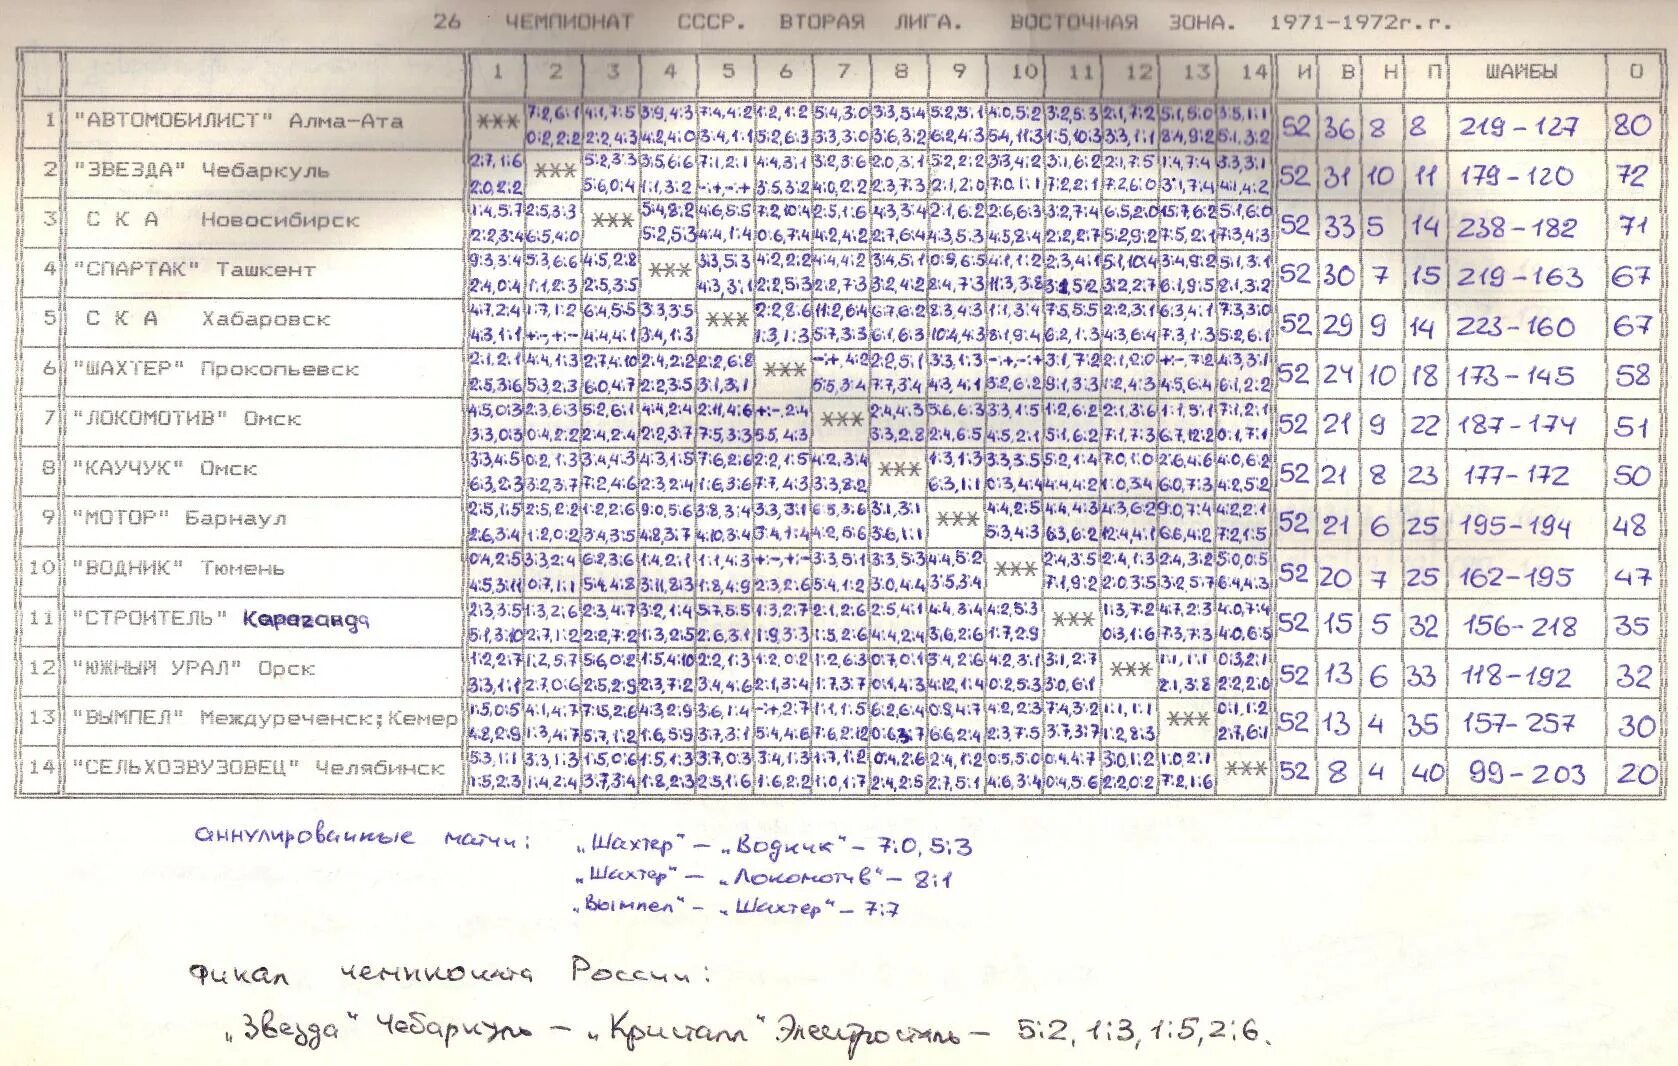 26 ЧЕМПИОНАТ СССР. ВТОРАЯ ЛИГА. ВОСТОЧНАЯ ЗОНА. 1971-1972г.г.
1 2 3 4 5 6 7 8 9 10 11 12 13 14 И В Н П ШАЙБЫ О
7:2,6:1 4:1,7:5 3:9,4:3 7:4,4:2 1:2,1:2 5:4,3:0 3:3,5:4 5:2,5:1 4:0,5:2 3:2,5:3 2:1,7:2 5:1,5:0 3:5,1:1
1 "АВТОМОБИЛИСТ" Алма-Ата *** 52 36 8 8 219-127 80
0:2,2:2 2:2,4:3 4:2,4:0 3:4,1:1 5:2,6:3 3:3,3:0 3:6,3:2 6:2,4:3 5:4,11:3 1:5,10:3 3:3,1:1 8:4,9:2 5:1,3:2
2:7,1:6 5:2,3:3 3:5,6:6 7:1,2:1 4:4,3:1 3:2,3:6 2:0,3:1 5:2,2:2 3:3,4:2 3:1,6:2 2:1,7:5 1:4,7:4 3:3,3:1
2 "ЗВЕЗДА" Чебаркуль *** 52 31 10 11 179-120 72
2:0,2:2 5:6,0:4 1:1,3:2 -:+,-:+ 3:5,3:2 4:0,2:2 2:3,7:3 2:1,2:0 7:0,1:1 7:2,2:1 7:2,6:0 3:1,7:4 4:1,4:2
1:4,5:7 2:5,3:3 5:4,8:2 4:6,5:5 7:2,10:4 2:5,1:6 4:3,3:4 2:1,6:2 2:6,6:3 3:2,7:4 6:5,2:0 15:7,6:2 5:1,6:0
3 С К А Новосибирск *** 52 33 5 14 238-182 71
2:2,3:4 6:5,4:0 5:2,5:3 4:4,1:4 0:6,7:4 4:2,4:2 2:7,6:4 4:3,5:3 4:5,8:4 2:2,2:7 5:2,9:2 7:5,2:1 7:3,4:3
9:3,3:4 5:3,6:6 4:5,2:8 3:3,5:3 4:2,2:2 4:4,4:2 3:4,5:1 0:9,6:5 4:1,1:2 2:3,4:1 5:1,10:4 3:4,9:2 5:1,3:1
4 "СПАРТАК" Ташкент *** 52 30 7 15 219-163 67
2:4,0:4 1:1,2:3 2:5,3:5 4:3,3:1 2:2,5:3 2:2,7:3 3:2,4:2 8:4,7:3 11:3,3:8 3:1,5:2 3:2,2:7 6:1,9:5 8:1,3:2
4:7,2:4 1:7,1:2 6:4,5:5 3:3,3:5 2:2,8:6 11:2,6:4 6:7,6:2 8:3,4:3 1:1,3:4 7:5,5:5 2:2,3:1 6:3,4:1 7:3,3:0
5 С К А Хабаровск *** 52 29 9 14 223-160 67
4:3,1:1 +:-,+:- 4:4,4:1 3:4,1:3 1:3,1:3 5:7,3:3 6:1,6:3 10:4,4:3 8:1,9:4 6:2,1:3 4:3,6:4 7:3,1:3 5:2,6:1
2:1,2:1 4:4,1:3 2:7,4:10 2:4,2:2 2:2,6:8 -:+,4:2 2:2,5:1 3:3,1:3 -:+,-:+ 3:1,7:2 2:1,2:0 +:-,7:2 4:3,3:1
6 "ШАХТЕР" Прокопьевск *** 52 24 10 18 173-145 58
2:5,3:6 5:3,2:3 6:0,4:7 2:2,3:5 3:1,3:1 5:5,3:4 7:7,3:4 4:3,4:1 3:2,6:2 9:1,3:3 1:2,4:3 4:5,6:4 6:1,2:2
4:5,0:3 2:3,6:3 5:2,6:1 4:4,2:4 2:11,4:6 +:-,2:4 2:4,4:3 5:6,6:3 3:3,1:5 1:2,6:2 2:1,3:6 1:1,5:1 7:1,2:1
7 "ЛОКОМОТИВ" Омск *** 52 21 9 22 187-174 51
3:3,0:3 0:4,2:2 2:4,2:4 2:2,3:7 7:5,3:3 5:5,4:3 3:3,2:8 2:4,6:5 4:5,2:1 5:1,6:2 7:1,7:3 6:7,12:2 0:1,7:1
3:3,4:5 0:2,1:3 3:4,4:3 4:3,1:5 7:6,2:6 2:2,1:5 4:2,3:4 1:3,1:3 3:3,3:5 5:2,1:4 7:0,1:0 2:6,4:6 4:0,6:2
8 "КАУЧУК" Омск *** 52 21 8 23 177-172 50
6:3,2:3 3:2,3:7 7:2,4:6 2:3,2:4 1:6,3:6 7:7,4:3 3:3,8:2 6:3,1:1 0:3,4:4 4:4,4:2 1:0,3:4 6:0,7:3 4:2,5:2
2:5,1:5 2:5,2:2 1:2,2:6 9:0,5:6 3:8,3:4 3:3,3:1 6:5,3:6 3:1,3:1 4:4,2:5 4:4,4:3 4:3,6:2 9:0,7:4 4:2,2:1
9 "МОТОР" Барнаул *** 52 21 6 25 195-194 48
2:6,3:4 1:2,0:2 3:4,3:5 4:8,3:7 4:10,3:4 3:4,1:4 4:2,5:6 3:6,1:1 5:3,4:3 6:3,6:2 12:4,4:1 6:6,4:2 7:2,1:5
0:4,2:5 3:3,2:4 6:2,3:6 1:4,2:1 1:1,4:3 +:-,+:- 3:3,5:1 3:3,5:3 4:4,5:2 2:4,3:5 2:4,1:3 2:4,3:2 5:0,0:5
10 "ВОДНИК" Тюмень *** 52 20 7 25 162-195 47
4:5,3:11 0:7,1:1 5:4,4:8 3:11,8:3 1:8,4:9 2:3,2:6 5:4,1:2 3:0,4:4 3:5,3:4 7:1,9:2 2:0,3:5 3:2,5:7 6:4,4:3
2:3,3:5 1:3,2:6 2:3,4:7 3:2,1:4 5:7,5:5 1:3,2:7 2:1,2:6 2:5,4:1 4:4,3:4 4:2,5:3 1:3,7:2 4:7,2:3 4:0,7:4
11 "СТРОИТЕЛЬ" Караганда *** 52 15 5 32 156-218 35
5:1,3:10 2:7,1:2 2:2,7:2 1:3,2:5 2:6,3:1 1:9,3:3 1:5,2:6 4:4,2:4 3:6,2:6 1:7,2:9 0:3,1:6 7:3,7:3 4:0,6:5
1:2,2:7 1:2,5:7 5:6,0:2 1:5,4:10 2:2,1:3 1:2,0:2 1:2,6:3 0:7,0:1 3:4,2:6 4:2,3:1 3:1,2:7 1:1,1:1 0:3,2:1
12 "ЮЖНЫЙ УРАЛ" Орск *** 52 13 6 33 118-192 32
3:3,1:1 2:7,0:6 2:5,2:9 2:3,7:2 3:4,4:6 2:1,3:4 1:7,3:7 0:1,4:3 4:12,1:4 0:2,5:3 3:0,6:1 2:1,3:8 2:2,2:0
1:5,0:5 4:1,4:7 7:15,2:6 4:3,2:9 3:6,1:4 -:+,2:7 1:1,1:5 6:2,6:4 0:9,4:7 4:2,2:3 7:4,3:2 1:1,1:1 0:1,1:2
13 "ВЫМПЕЛ" Междуреченск;Кемер *** 52 13 4 35 157-257 30
4:8,2:9 1:3,4:7 5:7,1:2 1:6,5:9 3:7,3:1 5:4,4:6 7:6,2:12 0:6,3:7 6:6,2:4 2:3,7:5 3:7,3:7 1:2,8:3 2:7,6:1
5:3,1:1 3:3,1:3 1:5,0:6 1:5,1:3 3:7,0:3 3:4,1:3 1:7,1:2 0:4,2:6 2:4,1:2 0:5,5:0 0:4,4:7 3:0,1:2 1:0,2:1
14 "СЕЛЬХОЗВУЗОВЕЦ" Челябинск *** 52 8 4 40 99-203 20
1:5,2:3 1:4,2:4 3:7,3:4 1:8,2:3 2:5,1:6 1:6,2:2 1:0,1:7 2:4,2:5 2:7,5:1 4:6,3:4 0:4,5:6 2:2,0:2 7:2,1:6
аннулированные матчи: „Шахтер" – „Водник" – 7:0, 5:3
„Шахтер" – „Локомотив" – 8:1
„Вымпел" – „Шахтер" – 7:7
финал чемпионата России:
„Звезда" Чебаркуль – „Кристалл" Электросталь – 5:2, 1:3, 1:5, 2:6.